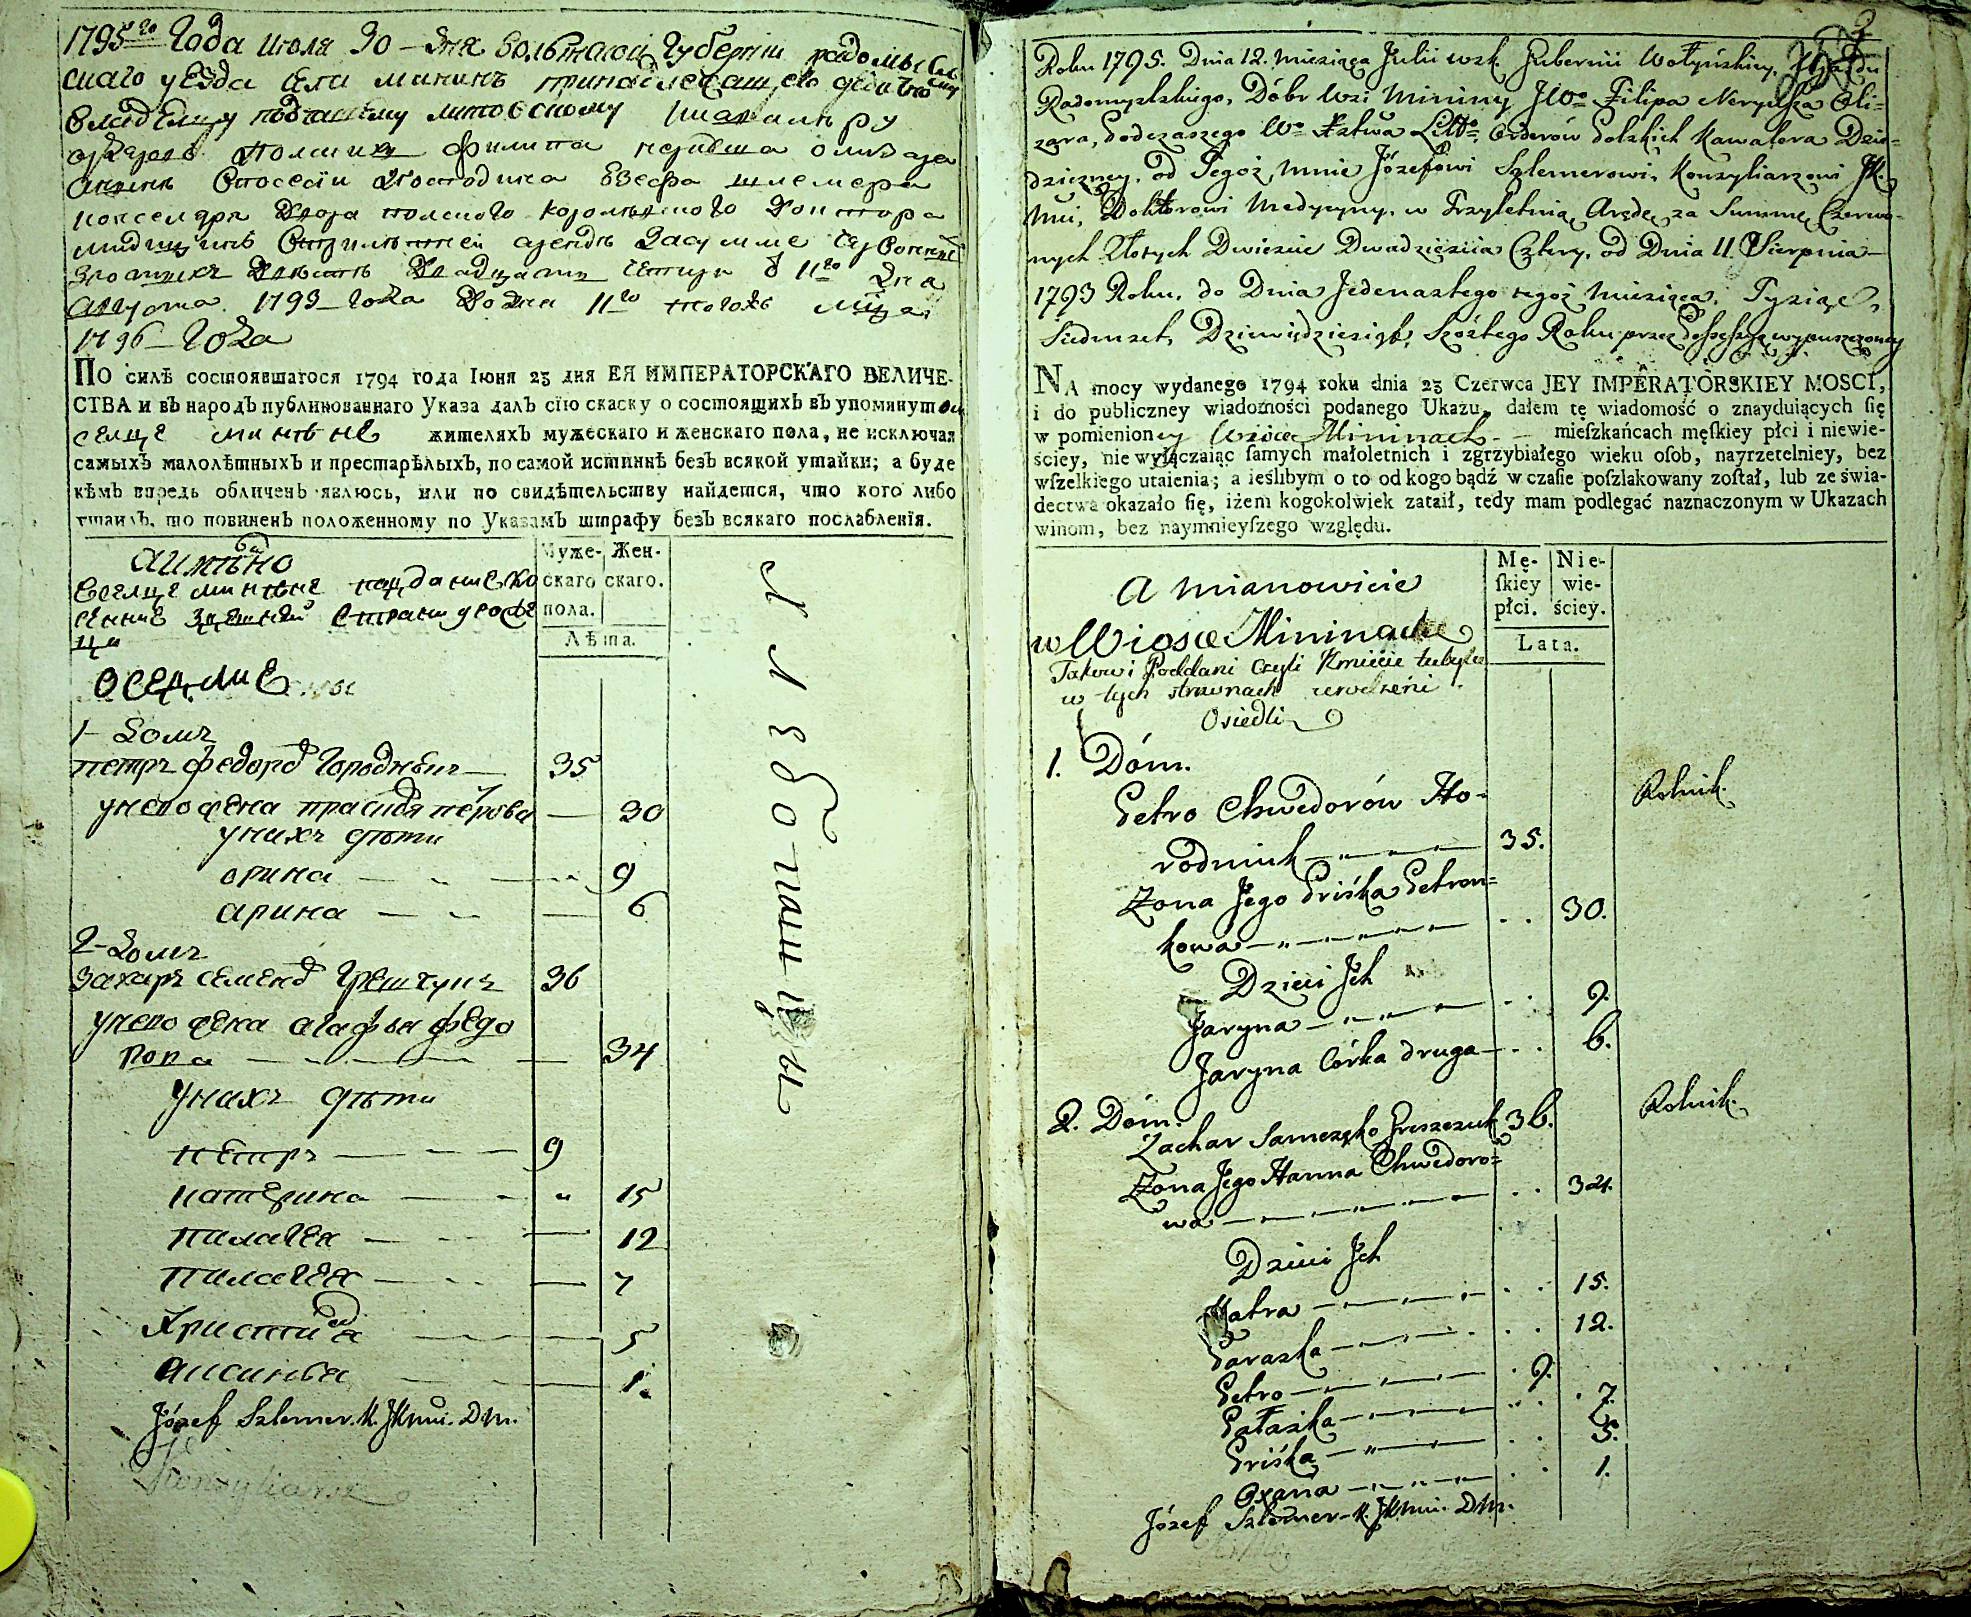 1795го Года Июля 30 – дня волынской Губернии радомысль
скаго уезда села мининъ принадлежащего
владелцу подчашему литовскому кавалеру
орденовъ полских филипа нерыюша олизара
господина
доктора
медицины
злотыхъ двѣстѣ двадцать четири с 11го дня
августа 1793 – года до дня 11го тогожъ мца
1796 – Года
По силѣ состоявшагося 1794 года Іюня 23 дня ЕЯ ИМПЕРАТОРСКАГО ВЕЛИЧЕ-
СТВА и въ народъ публикованнаго Указа далъ сїю скаску о состоящихъ въ упомянутом
селце минѣне жителяхъ мужескаго и женскаго пола, не исключая
самыхъ малолѣтныхъ и престарѣлыхъ, по самой истиннѣ безъ всякой утайки; а буде
кѣмъ впредь обличенъ явлюсь, или по свидѣтельству найдется, что кого либо
утаилъ, то повиненъ положенному по Указамъ штрафу безъ всякаго послабленїя.
аимѣнно
Муже- Жен-
скаго скаго.
пола.
Лѣта.
Вселце минѣне
оседлие
1 – Домъ
петръ федоро Городнѣчь — 35
унего жена праскя петрова — 30
унихъ дѣти
орина — 9
арина — 6
2 – Домъ
Захаръ семено Грешчукъ 36
унего жена агафья федо
рова — 34
Унихъ дѣти
петръ — 9
катерина — " 15
палагея — 12
палагея — 7
Христина — 5
аксинѣя — 1.
Józef Szlemer. K. JKmći. DM.
Konsyliarz
Хлѣбопашцы
2
Roku 1795. Dnia 12. Miesiąca Julii wsk. Gubernii Wołyńskiey, Ujazdu
Radomyslskiego, Dóbr Wsi Mininy JWo Filipa Neryusza Oli=
zara, podczaszego Wo Xstwa Litto Orderów Polskich Kawalera Dzie=
dziczney, od Tegoż, mnie Józefowi Szlemerowi, Konsyliarzowi JK.
Mci, Doktorowi Medycyny, w Trzyletnią Arędę za Summę Czerwo=
nych Złotych Dwieście Dwadzieścia Cztery, od Dnia 11. Sierpnia
1793 Roku, do Dnia Jedenastego tegoż Miesiąca, Tysiąc,
Siedmset, Dziewiędziesiąt, Szóstego Roku przez Possessyę wypuszczoney
NA mocy wydanego 1794 roku dnia 23 Czerwca JEY IMPERATORSKIEY MOSCI,
i do publiczney wiadomości podanego Ukazu, dałem tę wiadomość o znayduiących ſię
w pomienioney Wsice Mininach — mieſzkańcach męſkiey płci i niewie-
ściey, nie wyłączaiąc ſamych małoletnich i zgrzybiałego wieku oſob, nayrzetelniey, bez
wſzelkiego utaienia; a ieślibym o to od kogo bądź w czaſie poſzlakowany zoſtał, lub ze świa-
dectwa okazało ſię, iżem kogokolwiek zataił, tedy mam podlegać naznaczonym w Ukazach
winom, bez naymnieyſzego względu.
A mianowicie
Mę- Nie-
ſkiey wie-
płci. ściey.
Lata.
w Wiosce Mininach
Takowi Poddani Czyli Kmiecie tubylcy
w tych stronach urodzeni
Osiedli
1. Dóm.
Petro Chwedorów Ho= Rolnik.
rodniuk — 35.
Zona Jego Priśka Petron=
kowa — 30.
Dzieci Jch
Jaryna — 9.
Jaryna Córka druga — 6.
2. Dóm. Rolnik.
Zachar Samczęko Greszczuk 36.
Zona Jego Hanna Chwedoro=
wa — 34.
Dzieci Jch
Katra — 15.
Paraska — 12.
Petro — 9.
Pałazka — 7.
Priśka — 5.
Oxana — 1.
Józef Szlemer – K. JKmći. DM.